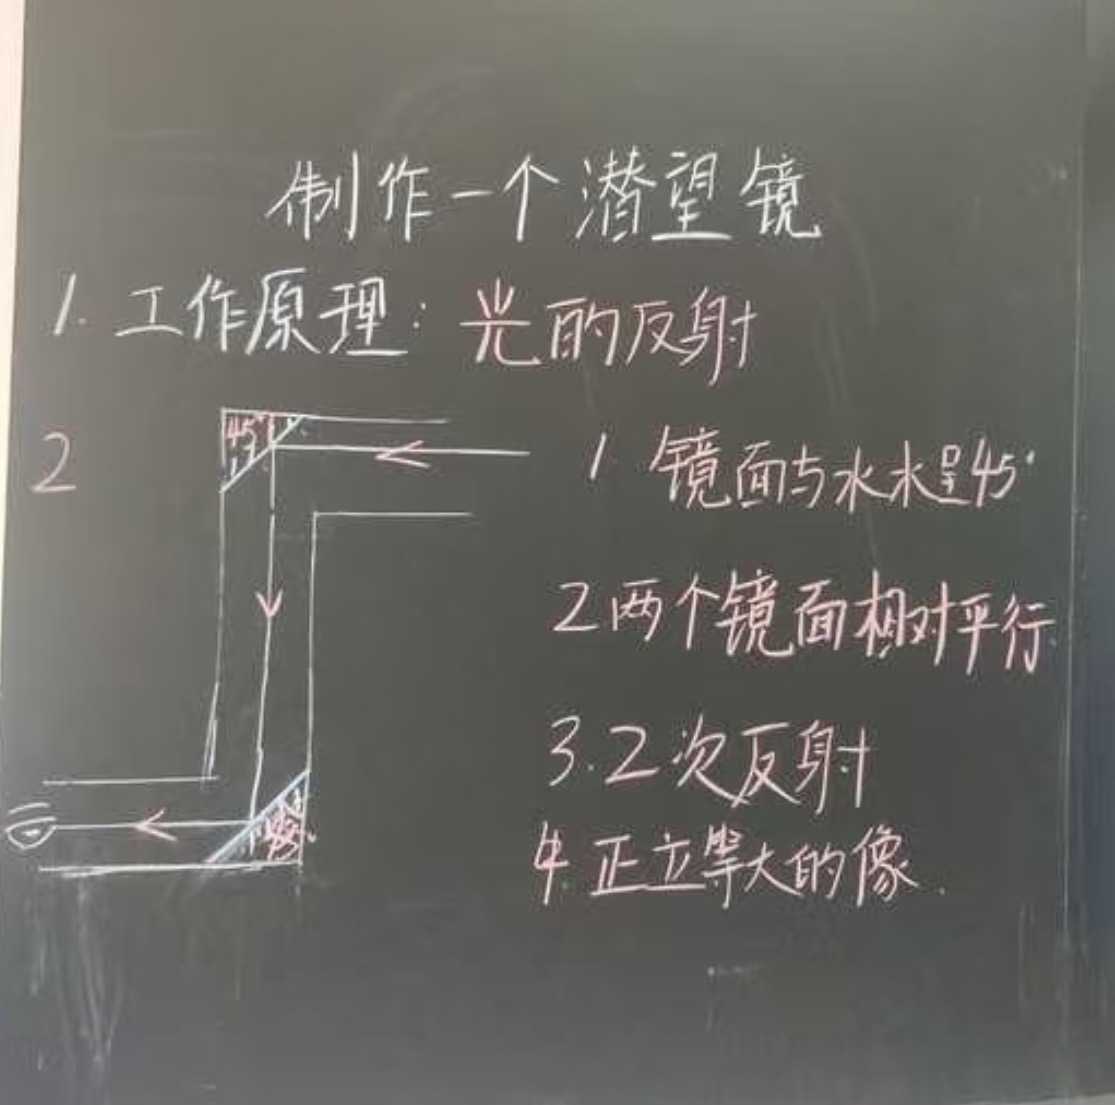 制作一个潜望镜
1.工作原理:光的反射
2
45°
1 镜面与水水呈45°
2两个镜面相对平行.
3.2次反射
4.正立等大的像.